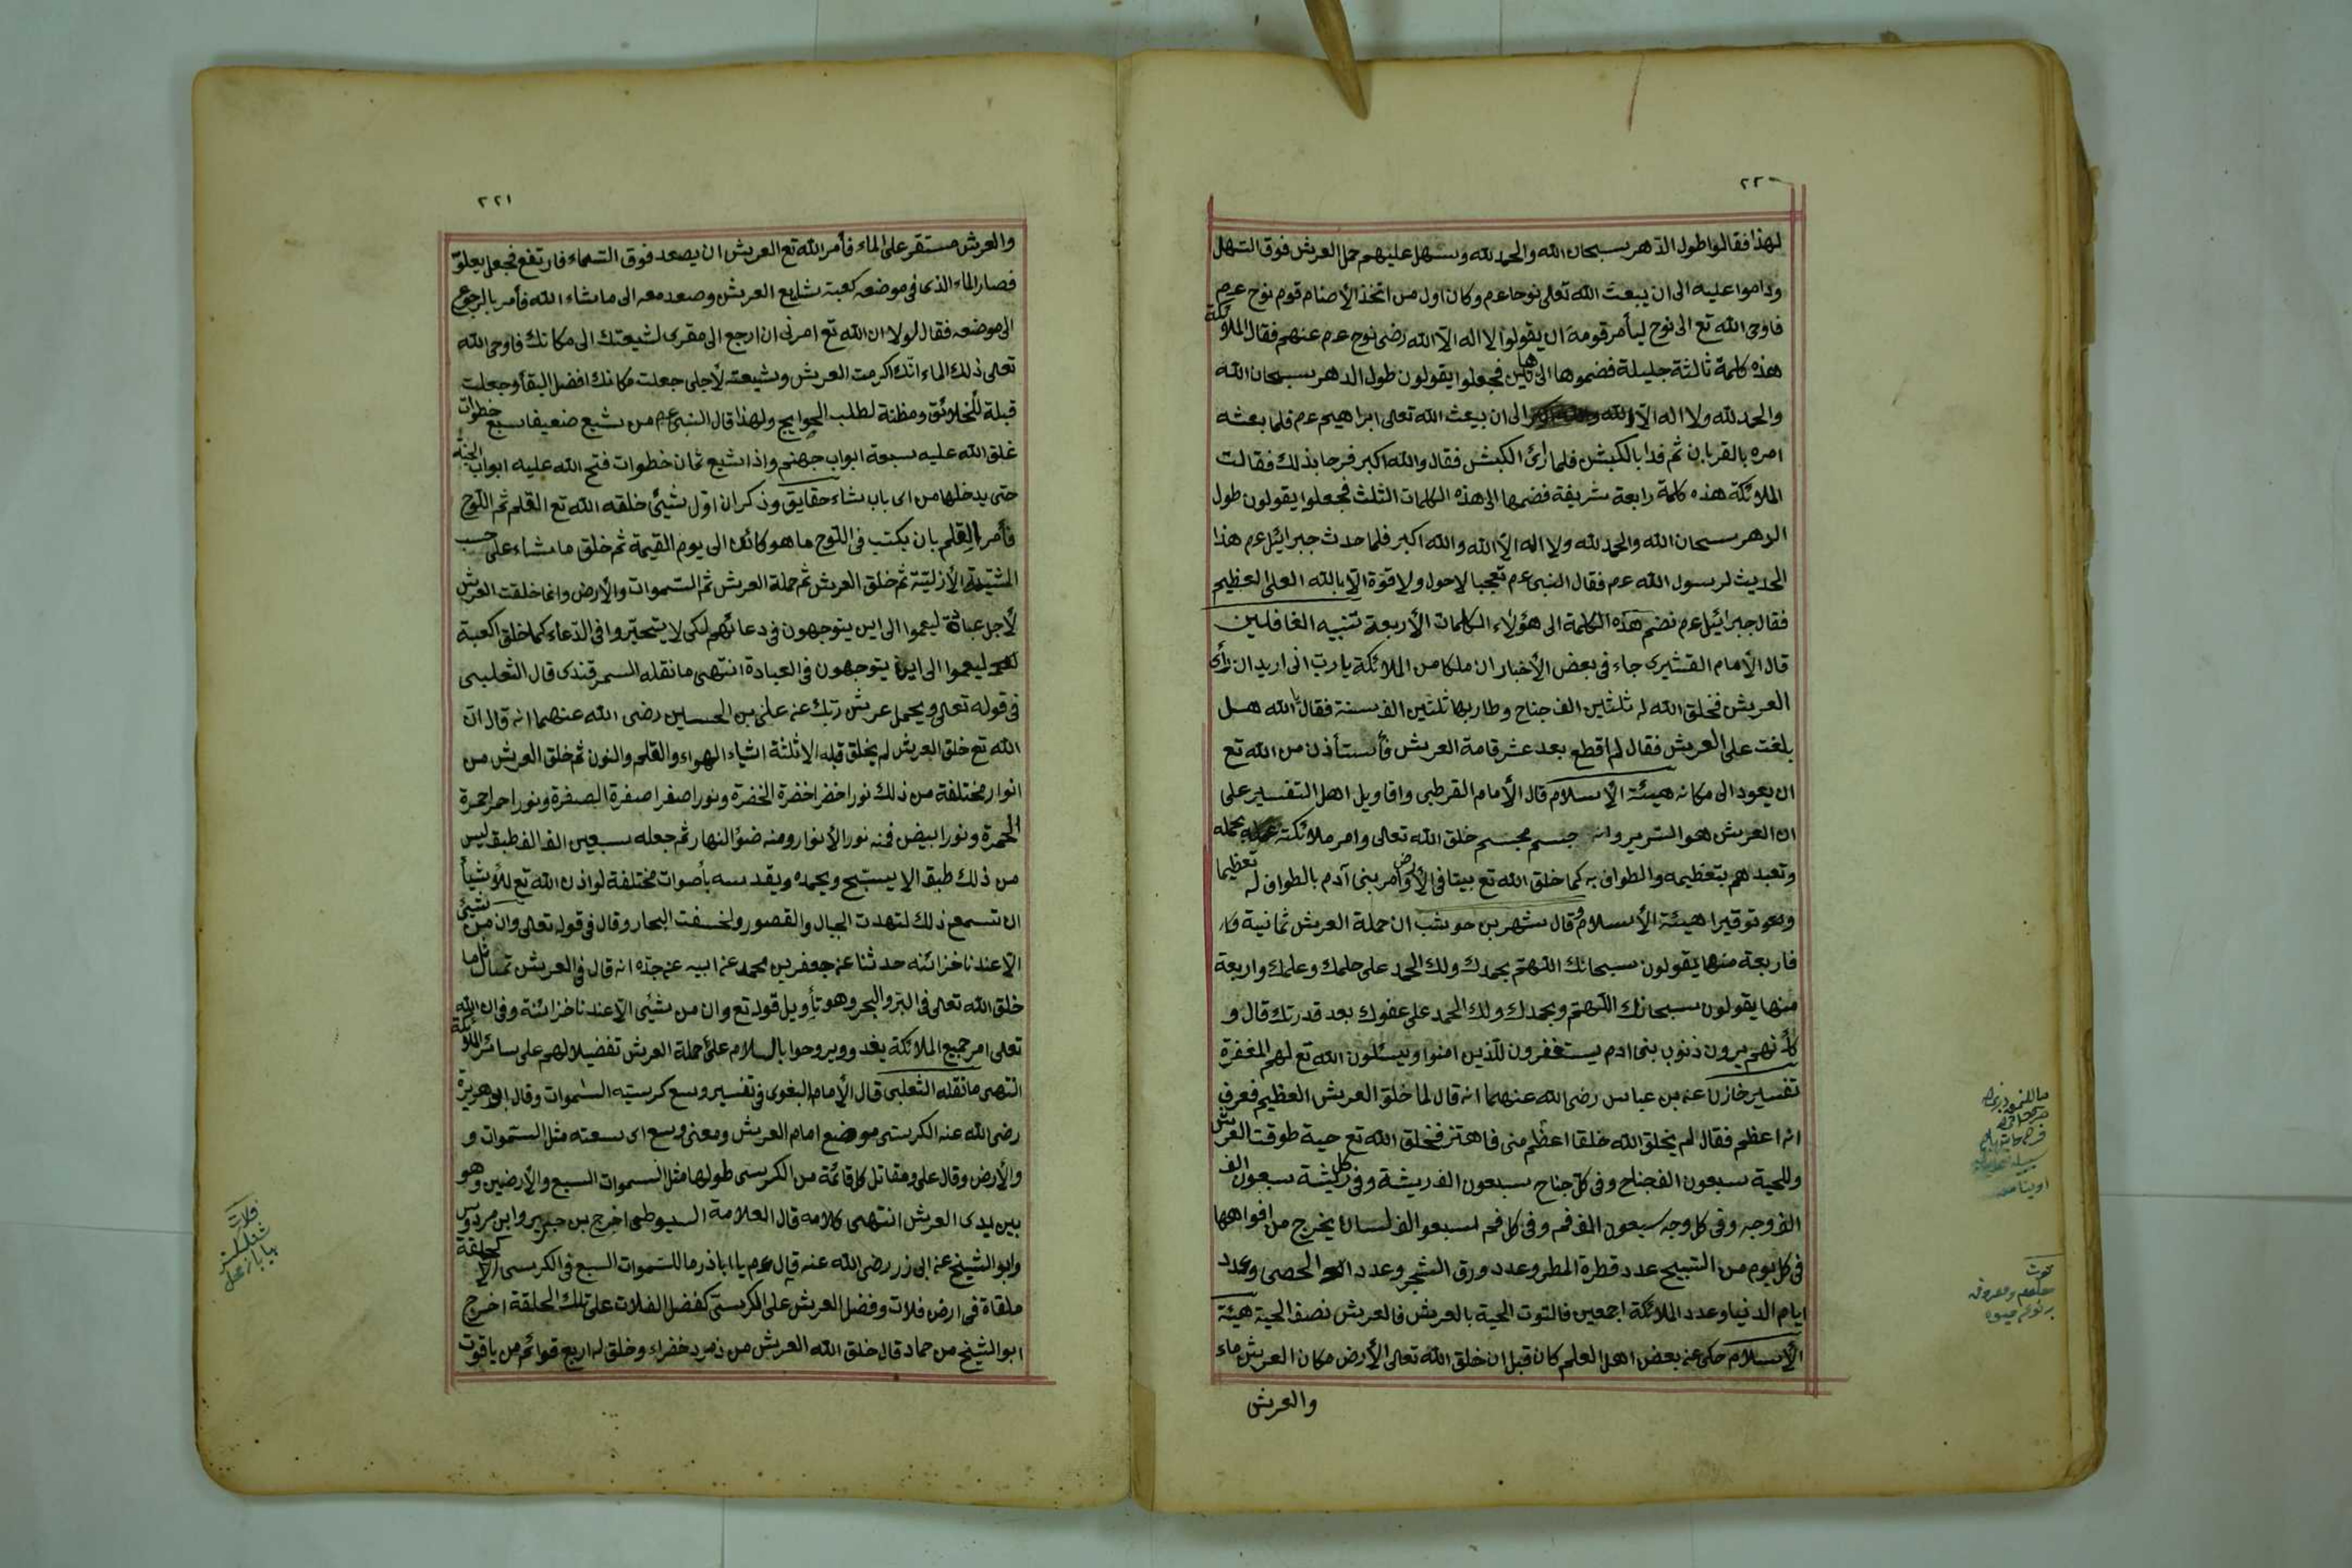 ٢٢٠
لهذا فقالوا طول الدهر سبحان الله والحمد لله وسهل عليهم حمل العرش فوق السهل
وداموا عليه الى ان يبعث الله تعالى نوحا عم وكان اول من اتخذ الأصنام قوم نوح عم
فاوحى الله تع الى نوح ليأمر قومه ان يقولوا لا اله الا الله رضى نوح عم عنهم فقال الملائكة
هذه كلمة ثالثة جليلة فضموها الى هاتين فجعلوا يقولون طول الدهر سبحان الله
والحمد لله ولا اله الا الله الى ان يبعث الله تعالى ابراهيم عم فلما بعثه
امره بالقربان ثم فدا بالكبش فلما رأى الكبش فقال والله اكبر فرحا بذلك فقالت
الملائكة هذه كلمة رابعة شريفة فضمها الى هذه الكلمات الثلث فجعلوا يقولون طول
الدهر سبحان الله والحمد لله ولا اله الا الله والله اكبر فلما حدث جبرائيل عم هذا
الحديث لرسول الله عم فقال النبى عم تعجبا لا حول ولا قوة الا بالله العلى العظيم
فقال جبرائيل عم نضم هذه الكلمة الى هؤلاء الكلمات الأربعة تنبيه الغافلين
قال الأمام القشيرى جاء فى بعض الأخبار ان ملكا من الملائكة يا رب انى اريد ان رأى
العرش فخلق الله له ثلثين الف جناح وطار بها ثلثين الف سنة فقال الله هل
بلغت على العرش فقال لم اقطع بعد عشر قامة العرش فأستأذن من الله تع
ان يعود الى مكانه هيئة الإسلام قال الأمام القرطبى واقاويل اهل التفسير على
ان العرش هو السرير وانه جسم مجسم خلق الله تعالى وامر ملائكته بحمله
وتعبدهم بتعظيمه والطواف به كما خلق الله تع بيتا فى الأرض وامر بنى آدم بالطواف له تعظيما
وتوقيرا هيئة الأسلام وقال شهر بن حوشب ان حملة العرش ثمانية
فاربعة منها يقولون سبحانك اللهم بحمدك ولك الحمد على حلمك وعلمك واربعة
منها يقولون سبحانك اللهم وبحمدك ولك الحمد على عفوك بعد قدرتك قال و
كأنهم يرون ذنوب بنى ادم يستغفرون للذين امنوا ويسئلون الله تع لهم المغفرة
تفسير خازن عن بن عباس رضى الله عنهما انه قال لما خلق العرش العظيم فعرف
انه اعظم فقال لم يخلق الله خلقا اعظم منى فاهتز فخلق الله تع حية طوقت العرش
وللحية سبعون الف جناح وفى كل جناح سبعون الف ريشة وفى كل ريشة سبعون الف
الف وجه وفى كل وجه سبعون الف فم وفى كل فم سبعو الف لسان يخرج من افواهها
فى كل يوم من التسبيح عدد قطرة المطر وعدد ورق الشجر وعدد الحصى وعدد
ايام الدنيا وعدد الملائكة اجمعين فالتوت الحية بالعرش فالعرش نصف الحية هيئة
الأسلام حكى عن بعض اهل العلم كان قبل ان خلق الله تعالى الأرض مكان العرش ماء
والعرش
٢٢١
والعرش مستقر على الماء فأمر الله تع العرش ان يصعد فوق السماء فارتفع فجعل يعلو
فصار الماء الذى فى موضعه كعبة شايع العرش وصعد معه الى ما شاء الله فأمر بالرجوع
الى موضعه فقال لولا ان الله تع امرنى ان ارجع الى مقرى لشيعتك الى مكانك فاوحى الله
تعالى ذلك الماء انك اكرمت العرش وشيعته لأجلى جعلت مكانك افضل البقاع وجعلت
قبلة للخلائق ومظنة لطلب الحوايج ولهذا قال النبى عم من شيع ضعيفا سبع خطوات
غلق الله عليه سبعة ابواب جهنم واذا شيع ثمان خطوات فتح الله عليه ابواب الجنة
حتى يدخلها من اى باب شاء حقايق وذكر ان اول شيئ خلقه الله تع القلم ثم اللوح
فأمر القلم بان يكتب فى اللوح ما هو كائن الى يوم القيمة ثم خلق ما شاء على حسب
المشيئة الأزلية ثم خلق العرش ثم حملة العرش ثم السموات والأرض وانما خلقت العرش
لأجل عباده ليعموا الى اين يتوجهون فى دعائهم لكى لا يتحيروا فى الدعاء كما خلق الكعبة
ليعموا الى اين يتوجهون فى العبادة انتهى ما نقله السمرقندى قال الثعلبى
فى قوله تعالى ويحمل عرش ربك عن على بن الحسين رضى الله عنهما انه قال ان
الله تع خلق العرش لم يخلق قبله الا ثلثة اشياء الهواء والقلم والنون ثم خلق العرش من
انوار مختلفة من ذلك نور اخضر اخضرة الخضرة ونور اصفر اصفرة الصفرة ونور احمر احمرة
الحمرة ونور ابيض فمنه نور الأنوار ومنه ضوء النهار ثم جعله سبعين الف الف طبق ليس
من ذلك طبق الا يسبح ويحمده ويقدسه بأصوات مختلفة لو اذن الله تع للأشيأ
ان تسمع ذلك لتهدت الجبال والقصور ولخسفت البحار وقال فى قوله تعالى وان من شيئ
الا عندنا خزائنه حدثنا عن جعفر بن محمد عن ابيه عن جده انه قال فى العرش تمثال ما
خلق الله تعالى فى البر والبحر وهو تأويل قوله تع وان من شيئى الا عندنا خزائنة وفى ان الله
تعالى امر جميع الملائكة يغدو ويروحوا بالسلام على حملة العرش تفضيلا لهم على سائر الملائكة
انتهى ما نقله الثعلبى قال الأمام البغوى فى تفسير وسع كرسيه السموات وقال ابو هريرة
رضى الله عنه الكرسى موضع امام العرش ومعنى وسع اى سعته مثل السموات و
والأرض وقال على ومقاتل كل قائمة من الكرسى طولها مثل السموات السبع والأرضين وهو
بين يدى العرش انتهى كلامه قال العلامة السيوطى اخرج بن جرير وابن مردوس
وابو الشيخ عن ابى زر رضى الله عنه قال عم يا اباذر ما للسموات السبع فى الكرسى الا كحلقة
ملقاة فى ارض فلات وفضل العرش على الكرسى كفضل الفلات على تلك الحلقة اخرج
ابو الشيخ من حماد قال خلق الله العرش من ذمرد خضراء وخلق له اربع قوائم من ياقوت
فلات